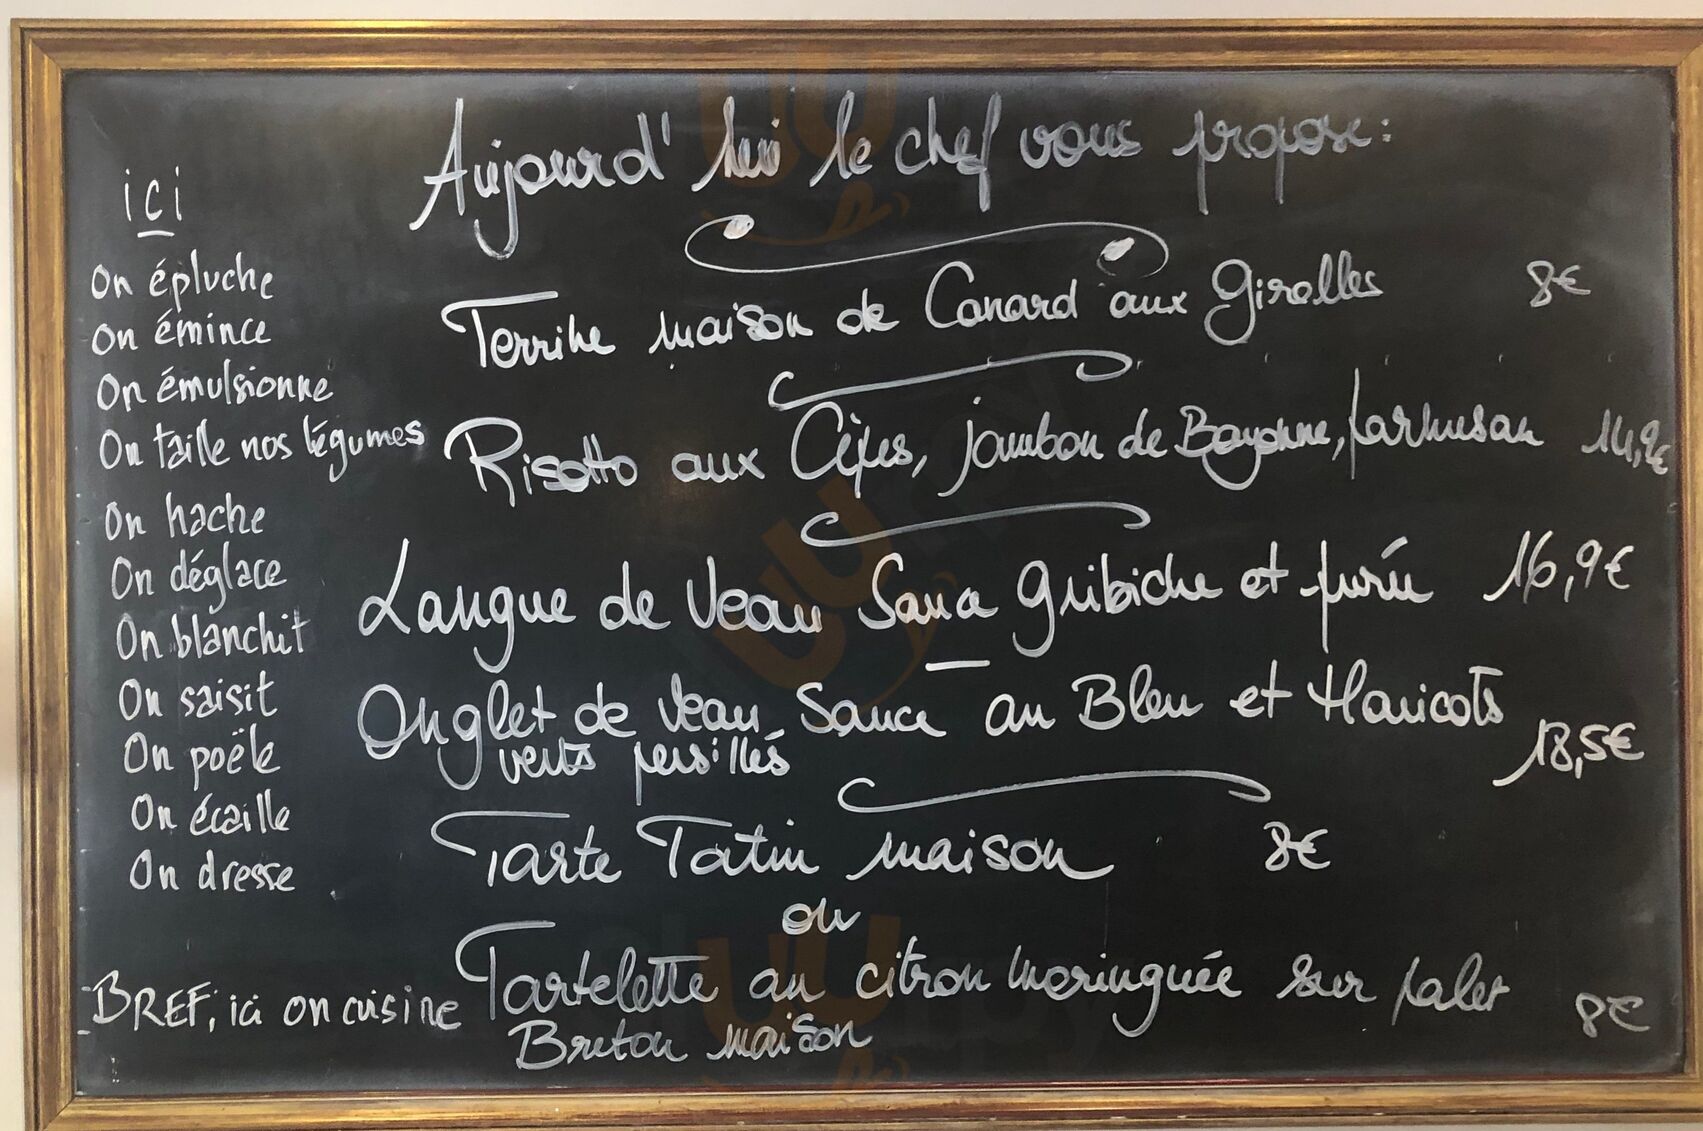 Aujourd'hui le chef vous propose:
ici
On épluche
On émince
On émulsionne
On taille nos légumes
On hache
On déglace
On blanchit
On saisit
On poële
On écaille
On dresse
BREF, ici on cuisine
Terrine maison de Canard aux Girolles 8€
Risotto aux Cèpes, jambon de Bayonne, parmesan 14,9€
Langue de Veau Sauce Gribiche et purée 16,9€
Onglet de Veau Sauce au Bleu et Haricots
verts persillés 18,5€
Tarte Tatin maison 8€
ou
Tartelette au citron meringuée sur palet 8€
Breton maison